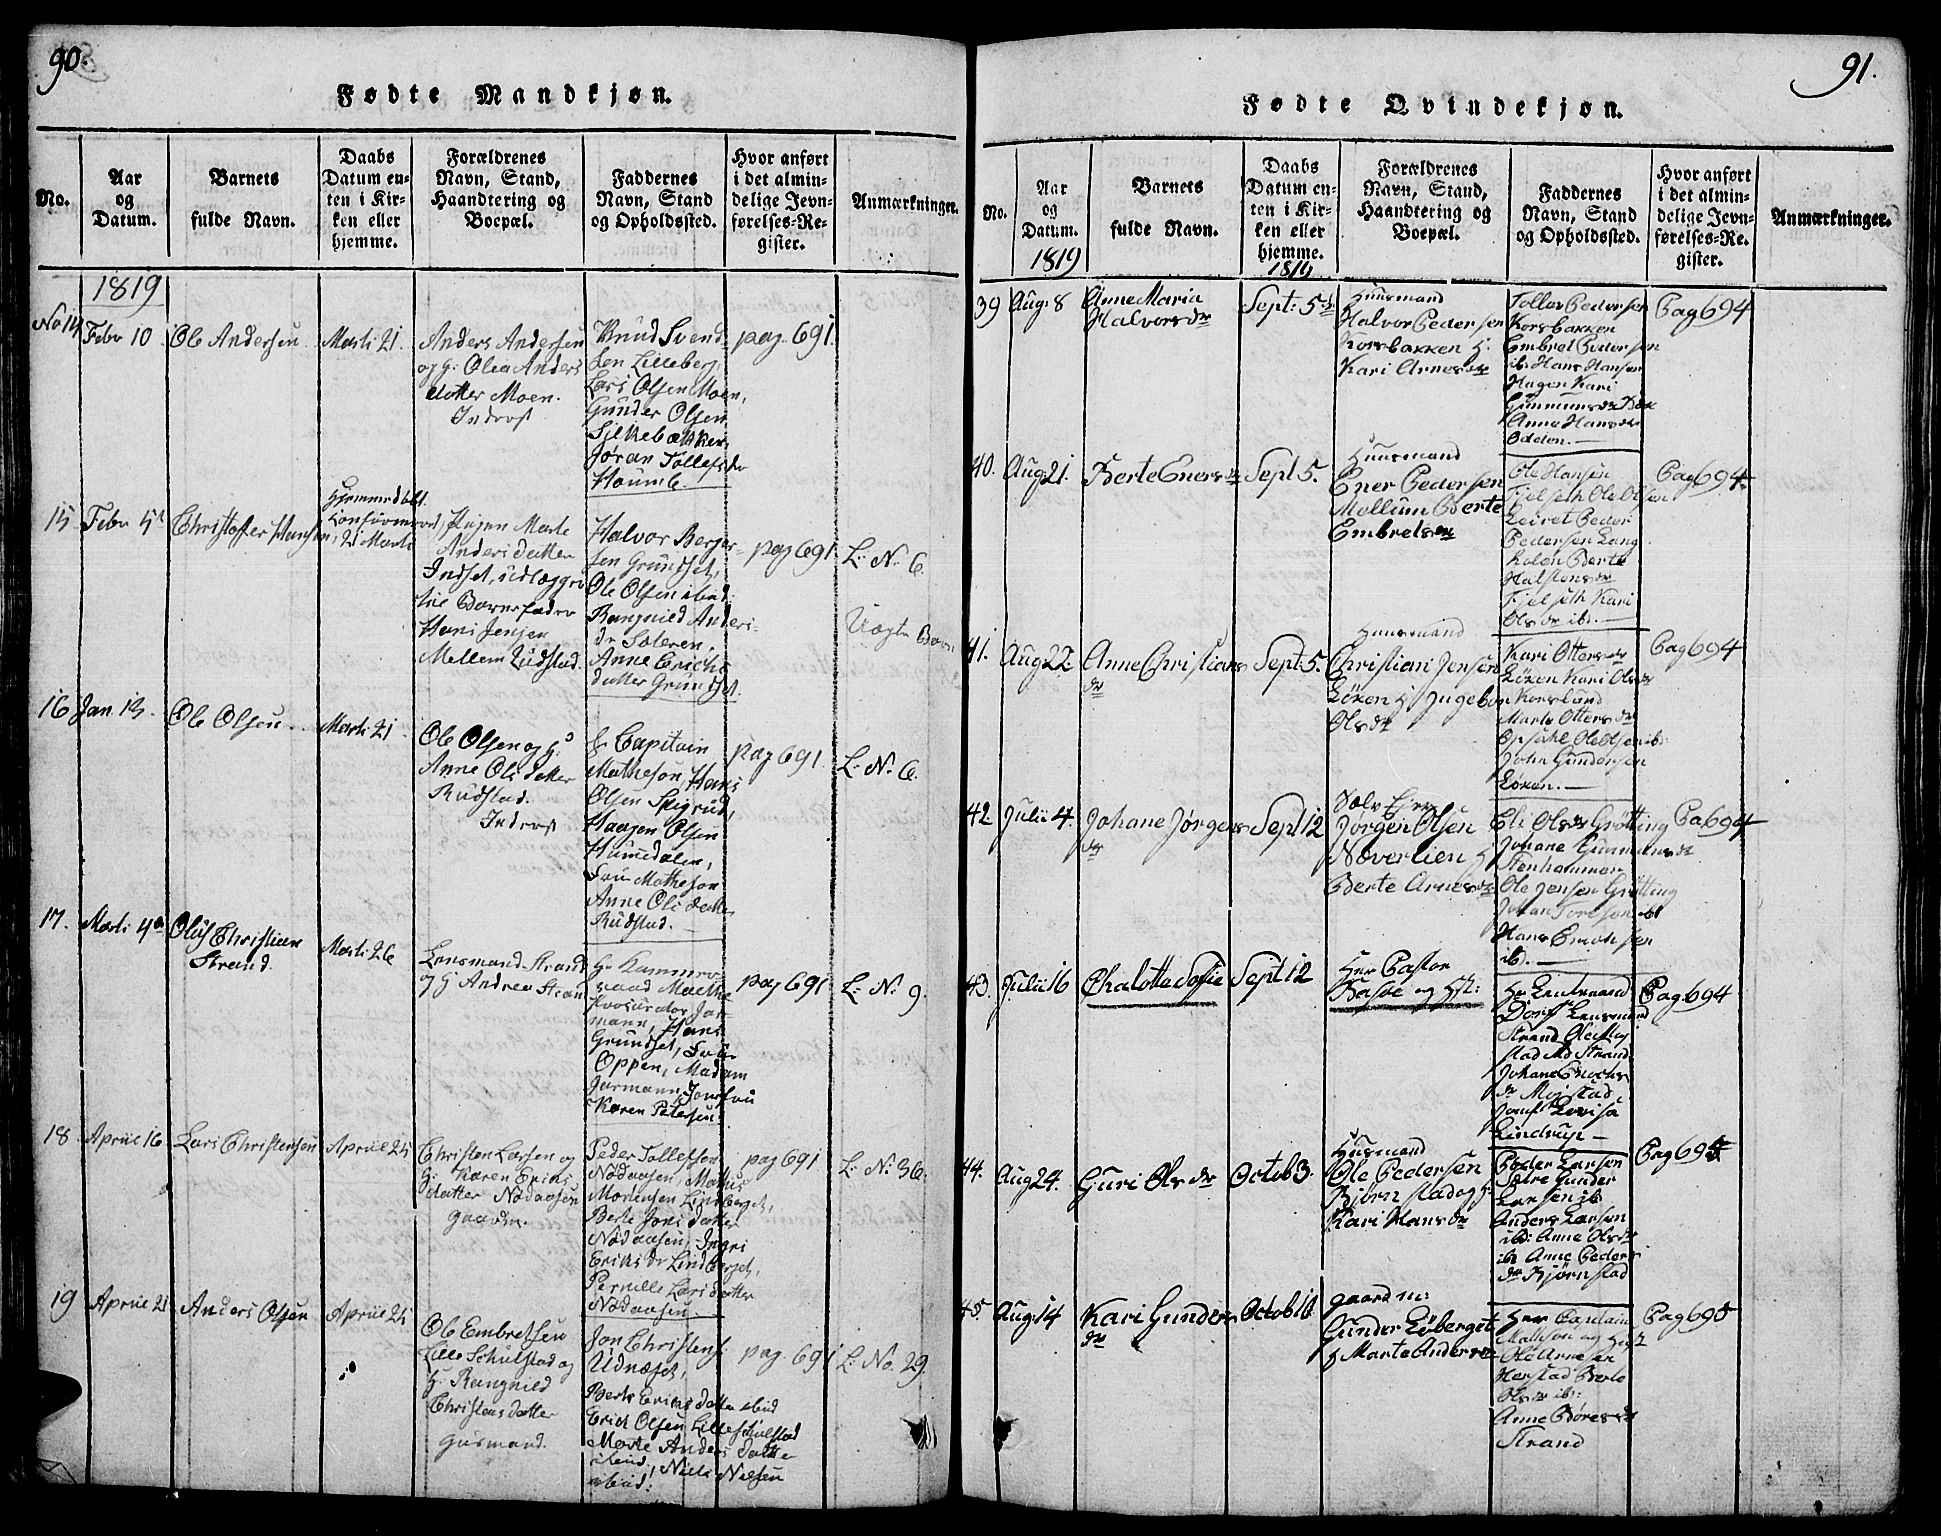 90.
Fødte Mandkjøn.
No.
Aar
og
Datum.
Barnets
fulde Navn.
Daabs
Datum en-
ten i Kir-
ken eller
hjemme.
Forældrenes
Navn, Stand,
Haandtering og
Boepæl.
Faddernes
Navn, Stand
og Opholdssted.
Hvor anført
i det almin-
delige Jevn-
førelses-Re-
gister.
Anmærkninger.
1819
No 14
Febr 10
Ole Andersen
Marti 21.
Anders Andersen
og H: Olea Anders
datter Moen.
Inderst
Knud Svend
sen Lilleberg,
Lars Olsen Moen,
Gunder Olsen
Silkebækken
Joran Tollefsdr
Houmb.
pag. 691
15
Febr 5t
Christoffer Hansen
Hjemmedøbt
Confirme
21 Marti
Pigen Marte
Anders datter
Indset, udlægger
til Barnefader
Hans Jensen
Mellem Rudstad.
Halvor Berger-
sen Grundset,
Ole Olsen ibid:
Rangnild Anders
dr Soleren,
Anne Erichs
datter Grundset.
pag 691
L: No 6.
Uægte Barn
16
Jan 13.
Ole Olsen.
Marti 21
Ole Olsen og H:
Anne Ols datter
Rudstad.
Inderst
Hr Capitain
Matheson, Hans
Olsen Spigrud,
Haagen Olsen
Hummdalen,
Fru Matheson
Anne Ols datter
Rudstad.
pag 691.
L: No 6.
17.
Marti 4de
Oluf Christian
Strand.
Marti 26
Lensmand Strand
og H Andrea Strand
Hr Kammer
raad Mælthe
Procurator Jar
mann, Hans
Grundset, Fru
Oppen, Madam
Jarmann, Jomfru
Karen Petersen.
pag 691
L: No 9.
18
Aprill 16
Lars Christensen
Aprill 25
Christen Larsen og
H: Karen Erics
datter Nodaasen
gaardm.
Peder Tollefsen
Nodaasen, Mathis
Mortensen Lindberget,
Berte Jons datter
Nodaasen, Ingri
Erichs dr Lindberget,
Pernille Lars datter
Nodaasen.
pag 691
L: No 36.
19
Aprill 21
Anders Olsen
Aprill 25
Ole Embretsen
Lille Schulstad og
H: Rangnild
Christens datter
Gusmand.
Jon Christens:
Udnæset,
Berte Erichs datter ibid
Erich Olsen Lilleschulstad
Marte Anders datter
ibid, Niels Nielsen
ibid:
pag. 691
L: No. 29.
91.
Fødte Qvindekjøn.
No.
Aar
og
Datum.
1819
Barnets
fulde Navn.
Daabs
Datum en-
ten i Kir-
ken eller
hjemme.
1819
Forældrenes
Navn, Stand,
Haandtering og
Boepæl.
Faddernes
Navn, Stand
og Opholdssted.
Hvor anført
i det almin-
delige Jevn-
førelses-Re-
gister.
Anmærkninger.
39
Aug: 8
Anne Maria
Halvorsdr
Sept: 5te
Huusmand
Halvor Pedersen
Korsbakken H.
Kari Arnesdr
Tollev Pedersen
Korsbakken
Embret Pedersen
ib: Hans Hansen
Hagen Kari
Gummunsdr
Anne Hansdr
Odden.
Pag 694
40.
Aug. 21.
Berte Enersdr
Sept 5.
Huusmand
Ener Pedersen
Mellum Berte
Embretsdr
Ole Hansen
Fjelseth Ole Olsen
Leiret Peder
Pedersen Lang
kolen Berte
Halstensdr
Fjelseth Kari
Olsdr ib:
Pag 694.
41.
Aug 22.
Anne Christians
dr
Sept 5.
Huusmand
Christian Jensen
Löken H Ingebor
Olsdr
Kari Ottersdr
Löken Kari Olsdr
Korslund
Marte Ottersdr
Opsahl Ole Olsen ib:
John Gundersen
Löken.
Pag 694
42
Julii 4.
Johane Jørgens
dr
Sept 12
Selv Ejer
Jørgen Olsen
Næverlien H
Berte Arnesdr
Eli Olsdr Grötting
Johane Gummunsdr
Stenhammer
Ole Jensen Grötting
Johan Toresen ibd
Hans Embretsen
ib.
Pag 694
43.
Julii 16
Chalotte Sofie
Sept 12
Herr Pastor
Basøe og Hst:
Hr Leutnand
Dorf Lensmand
Strand Ole Mog
stad Md Strand
Johane Enochs
dr Mogstad
Jomf Lovisa
Lindrup
Pag 694
44.
Aug 24.
Guri Olsdr
Octob 3.
Husmand
Ole Pedersen
Björnstad og H:
Kari Hansdr
Peder Larsen
Sætre Gunder
Larsen ib
Anders Larsen
ibd: Anne Olsdr
ib Anne Peders
dr Bjørnstad
Pag 695
45.
Aug 14
Kari Gunders
dr
Octob 10
gaardm:
Gunder Löberget
H Marte Andersdr
Herr Captain
Matheson og Hst
Ole Arnesen
Herstad Berte
Olsdr ib:
Anne Böresdr
Strand
Pag 695